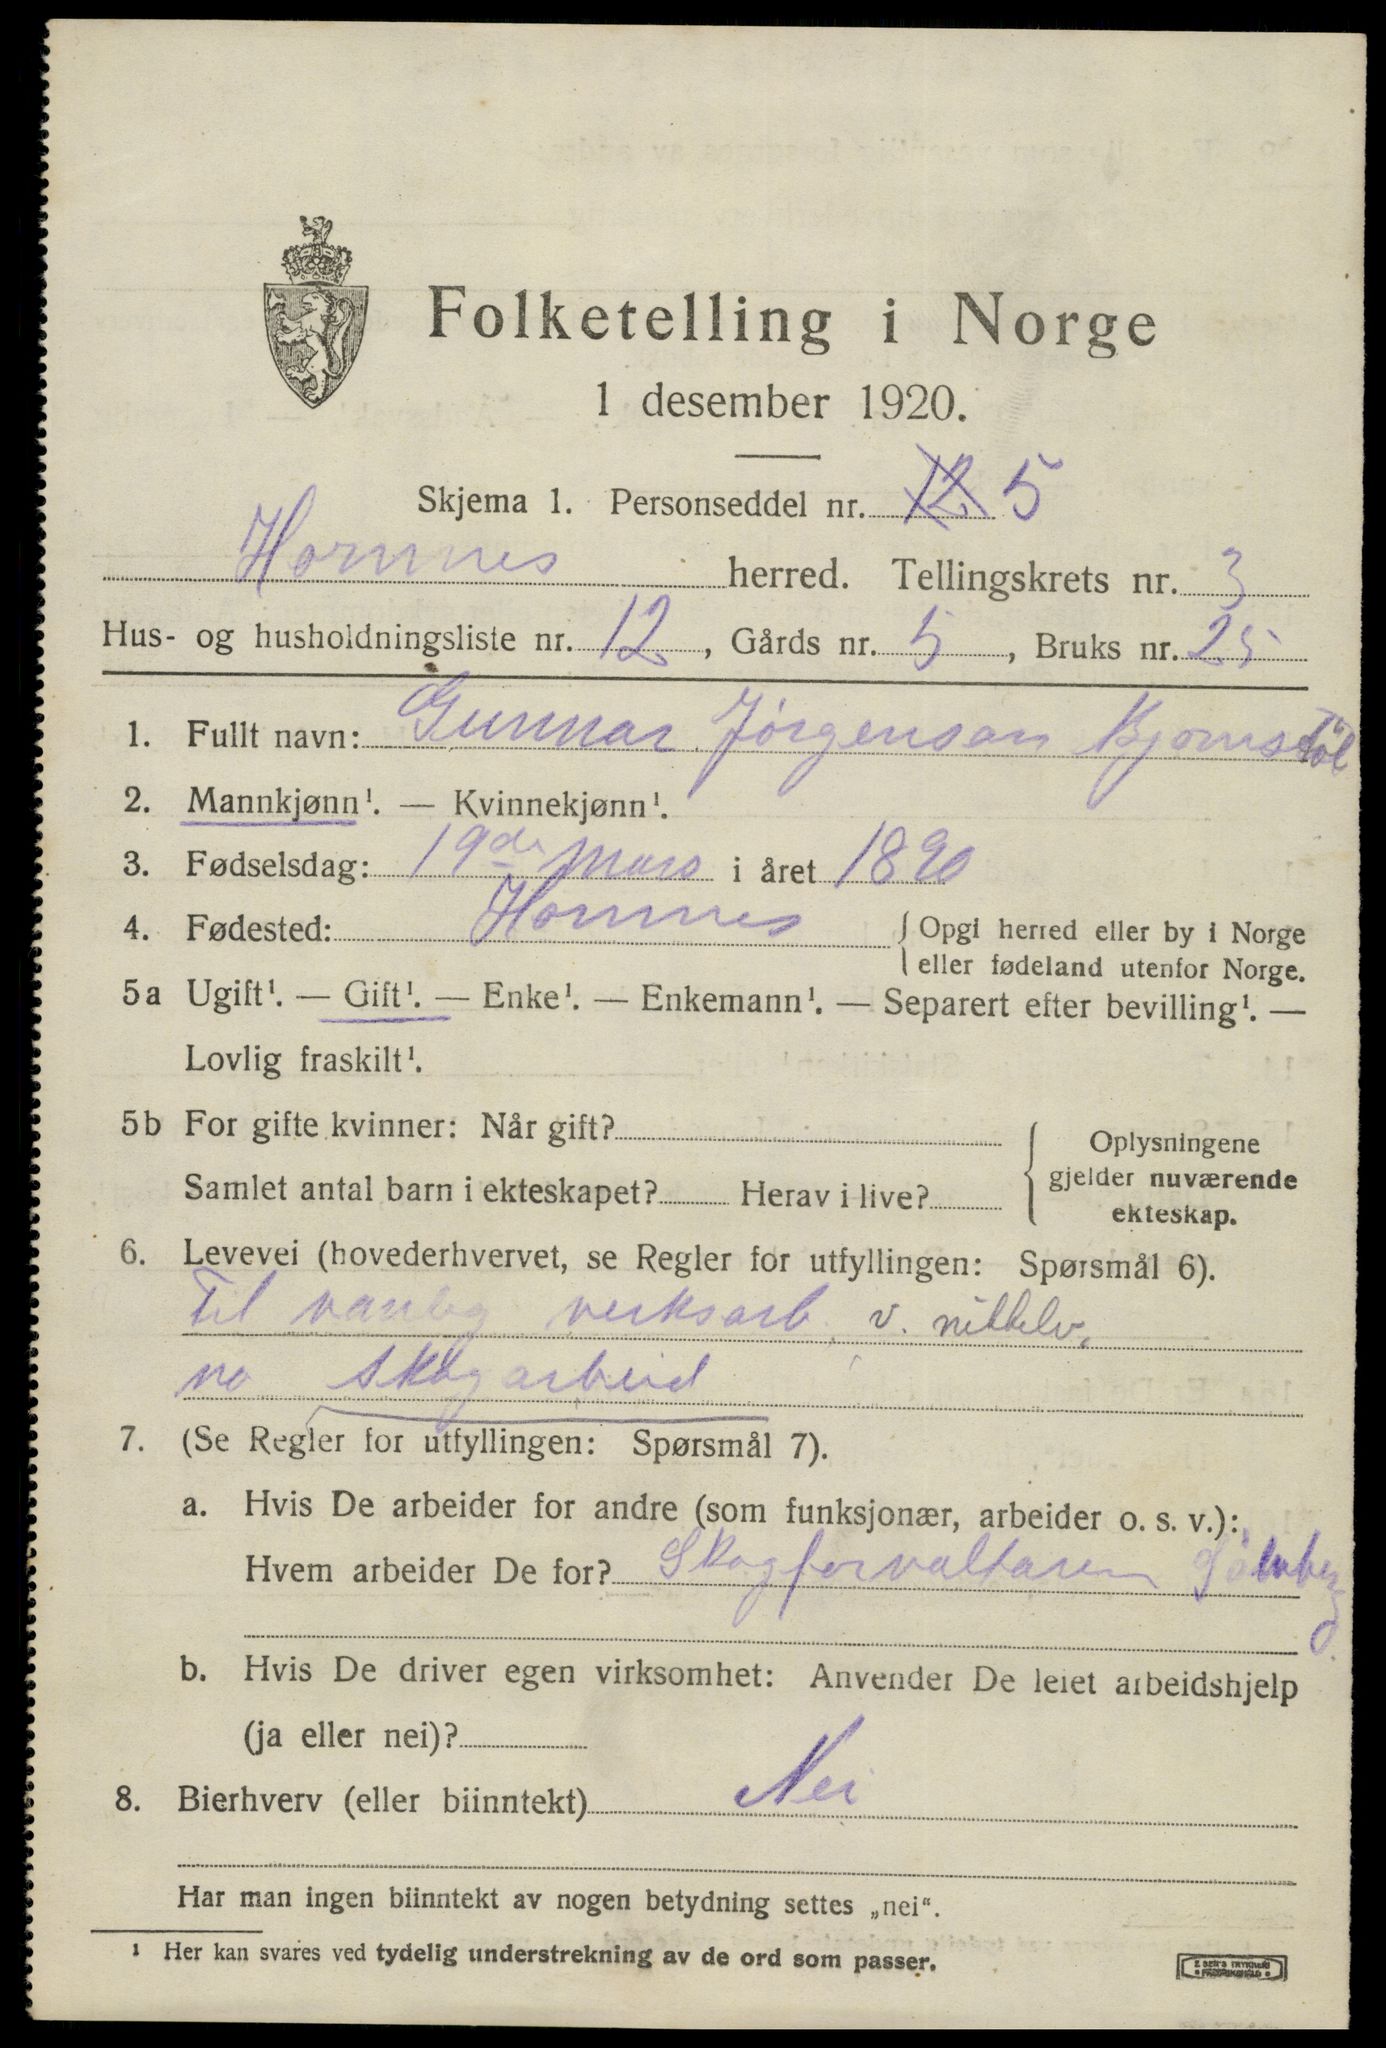 Folketelling i Norge
1 desember 1920.
Skjema 1. Personseddel nr. 12 5
Hornnes herred. Tellingskrets nr. 3
Hus- og husholdningsliste nr. 12, Gårds nr. 5, Bruks nr. 25
1. Fullt navn: Gunnar Jørgensen
2. Mannkjønn¹. — Kvinnekjønn¹.
3. Fødselsdag: 19de mars i året 1890
4. Fødested: Hornnes { Opgi herred eller by i Norge
eller fødeland utenfor Norge.
5a Ugift¹. — Gift¹. — Enke¹. — Enkemann¹. — Separert efter bevilling¹. —
Lovlig fraskilt¹.
5b For gifte kvinner: Når gift?
Samlet antal barn i ekteskapet? Herav i live?
{ Oplysningene
gjelder nuværende
ekteskap.
6. Levevei (hovederhvervet, se Regler for utfyllingen: Spørsmål 6).
Til vanleg verksarb. v. nikkelv.
no skogarbeid
7. (Se Regler for utfyllingen: Spørsmål 7).
a. Hvis De arbeider for andre (som funksjonær, arbeider o. s. v.):
Hvem arbeider De for? Skogforvaltaren
b. Hvis De driver egen virksomhet: Anvender De leiet arbeidshjelp
(ja eller nei)?
8. Bierhverv (eller biinntekt) Nei
Har man ingen biinntekt av nogen betydning settes „nei“.
¹ Her kan svares ved tydelig understrekning av de ord som passer.